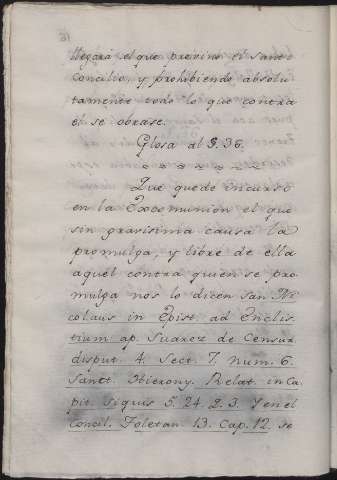 llegará el que previno el santo
Concilio, y prohibiendo absolu-
tamente todo lo que contra
el se obrase.
Glosa al §. 36.
Que quede incurso
en la Excomunión el que
sin gravisima causa la
promulga, y libre de ella
aquel contra quien se pro-
mulga nos lo dicen San Ni
colaus in Epist. ad Enclis-
tium ap. Suarez de Censur.
disput. 4. Sect. 7. num. 6.
Sanct. Hierony. Relat. in Ca
pit. Siquis 5. 24. 2. 3. Y en el
Concil. Toletan. 13. Cap. 12. se